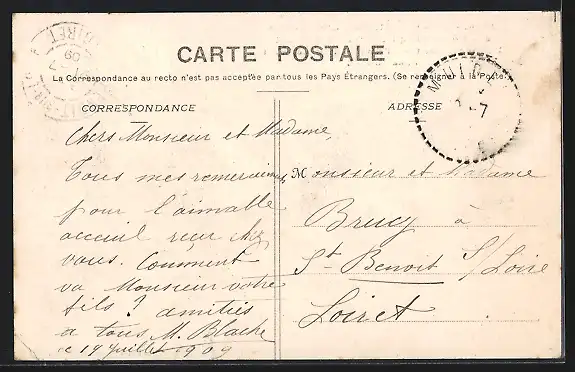 CARTE POSTALE
La Correspondance au recto n'est pas acceptée par tous les Pays Étrangers. (Se renseigner à la Poste.)
CORRESPONDANCE
Chers Monsieur et Madame,
Tous mes remerciements
pour l'aimable
acceuil reçu chez
vous. Comment
va Monsieur votre
fils ? amitiés
a tous M. Blache
le 14 juillet 1909
ADRESSE
Monsieur et Madame
Brucy à
St Benoit s/Loire
Loiret
LOIRET
09
7